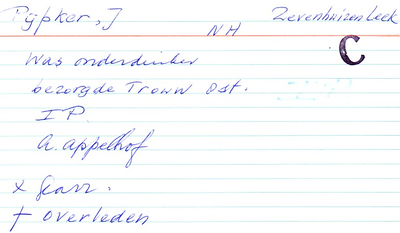 Pijpker, J NH Zevenhuizen Leek
C
Was onderduiker
bezorgde Trouw Dst.
I P.
A. Appelhof
x
† overleden